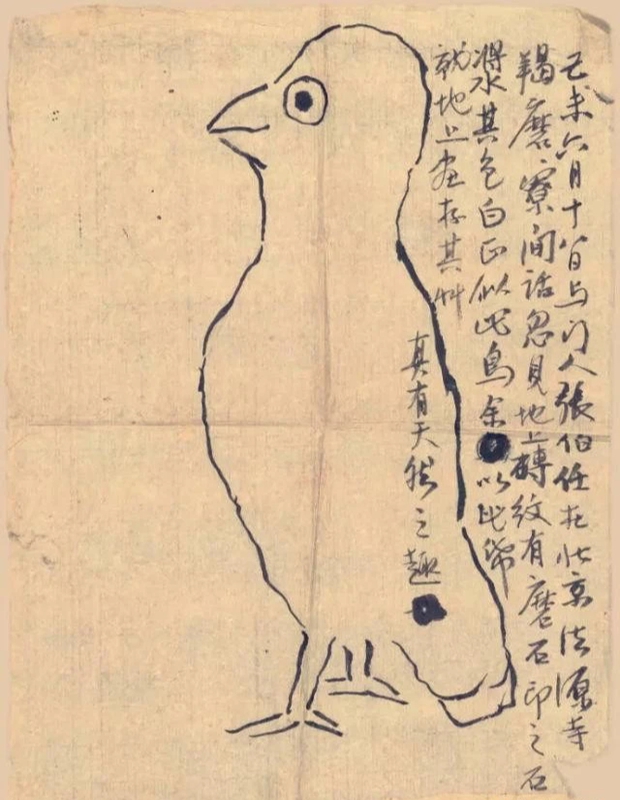 己未六月十八日与门人張伯任在北京法源寺
羯磨寮间话忽見地上磚紋有磨石印之石
漿水其色白正似此鳥余以此帋
就地上画存其艸
真有天然之趣